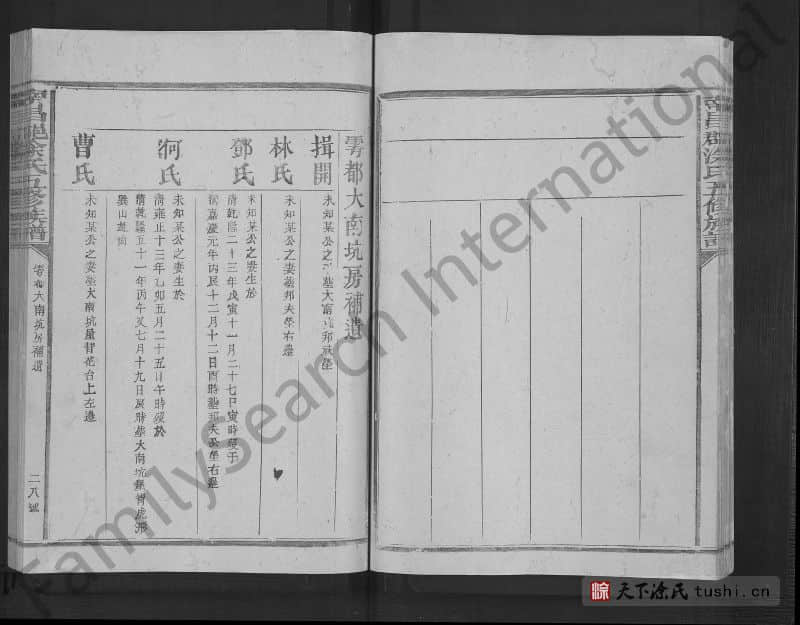 雩都大南坑房補遺
揖開
未知某公之
林氏
未知某公之妻葬邦夫塋右邊
鄧氏
未知某公之妻生於
清乾隆二十三年戊寅十一月二十七日寅時歿于
嘉慶元年丙辰十二月十二日酉時葬邦夫公塋右邊
何氏
未知某公之妻生於
清雍正十三年乙卯五月二十五日午時歿於
清乾隆五十一年丙午又七月十九日辰時葬大南坑
曹氏
未知某公之妻葬大南坑屋背花台上左邊
氏五修族譜
大南坑房補遺
二八
氏五修族譜
FamilySearch International
天下涂氏 tushi.cn